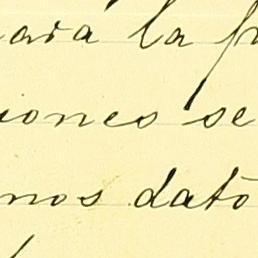 para la
iones se
nos dato